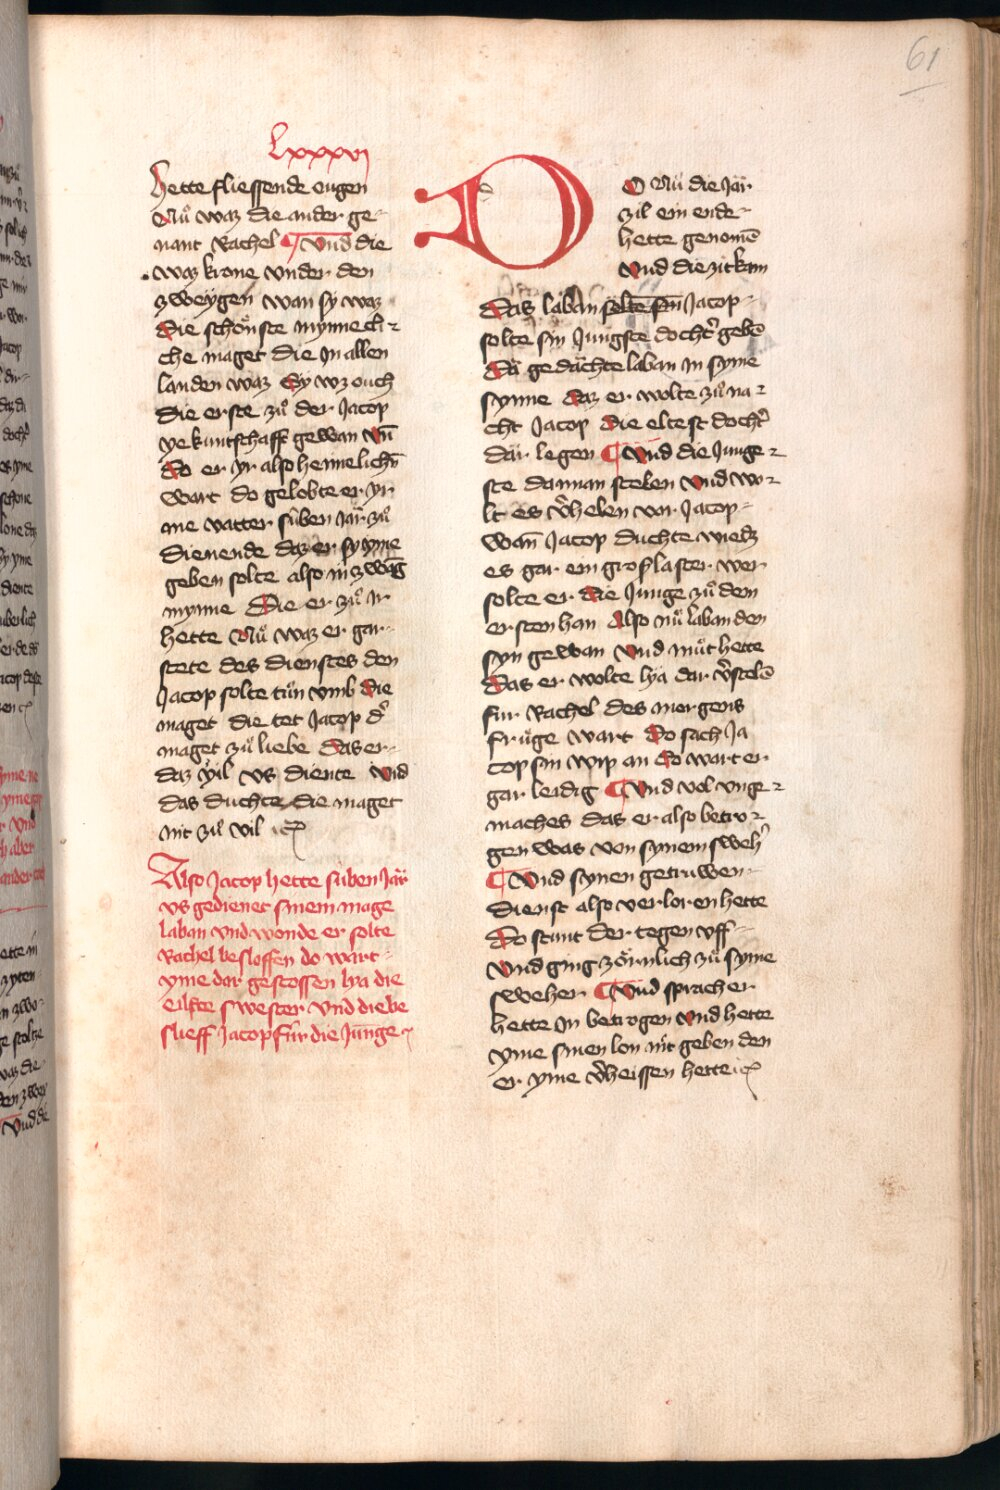 61
Lxxxvj
hette fliessende eugen
Nuͦ waz die ander ge-
nant Rachel ¶ Vnd die
waz krone vnder den
zweygen wan sy waz
die schoͤnste mynnech-
che maget die jn allen
landen waz Sy wz ouch
die erste zuͦ der Jacop
ye kuntschafft gewan vn̄
do er yr also heimelich
wart do gelobte er yr
me vatter suͤben Jar zuͦ
dienende daz er sy yme
geben solte also
mynne Die er zuͦ Ir
hette Nuͦ waz er gar-
stete des dienstes den
Jacop solte tuͦn vmb die
maget die tet Jacop d'
maget zuͦ liebe das er-
daz zyl vs diente vnd
das duchte die maget
nit zuͦ vil
Also Jacop hette suͤben Jar
vs gedienet sinem mage
laban vnd wonde er solte
Rachel besloffen do wart-
yme dar gestossen lya die
eilste swester vnd die be
slieff Jacop fuͤr die Junge
DO Nuͦ die Jar
zil ein ende-
hette genomē
Vnd die zit kam
Das laban solte sin Jacop-
solte sin Jungste docht' gebē
Da gedachte laban In syme
synne daz er wolte zuͦ na-
cht Jacop die eltest docht'
dar legen ¶ Vnd die Junge-
ste dannan stelen Vnd wo-
lt es v'helen vor Jacop-
wan̄ Jacop duchte
es gar ein gros laster wer
solte er die Junge zuͦ dem
ersten han Also nuͦ laban den
syn gewan vnd muͦt hette
Das er wolte lya dar v'stelē
fur Rachel des morgens
fruͤge wart do sach Ja
cop sin wip an do wart er
gar leidig ¶ Vnd vol vnge-
maches das er also betro-
gen was von synem sweh'
¶ Vnd synen getruwen-
dienst also verloren hette
Do stunt der tegen vff-
vnd ging zoͤrnlich zuͦ syme
sweher ¶ Vnd sprach er
hette In betrogen vnd hette
yme sinen lon nit geben den
er yme v'heissen hette